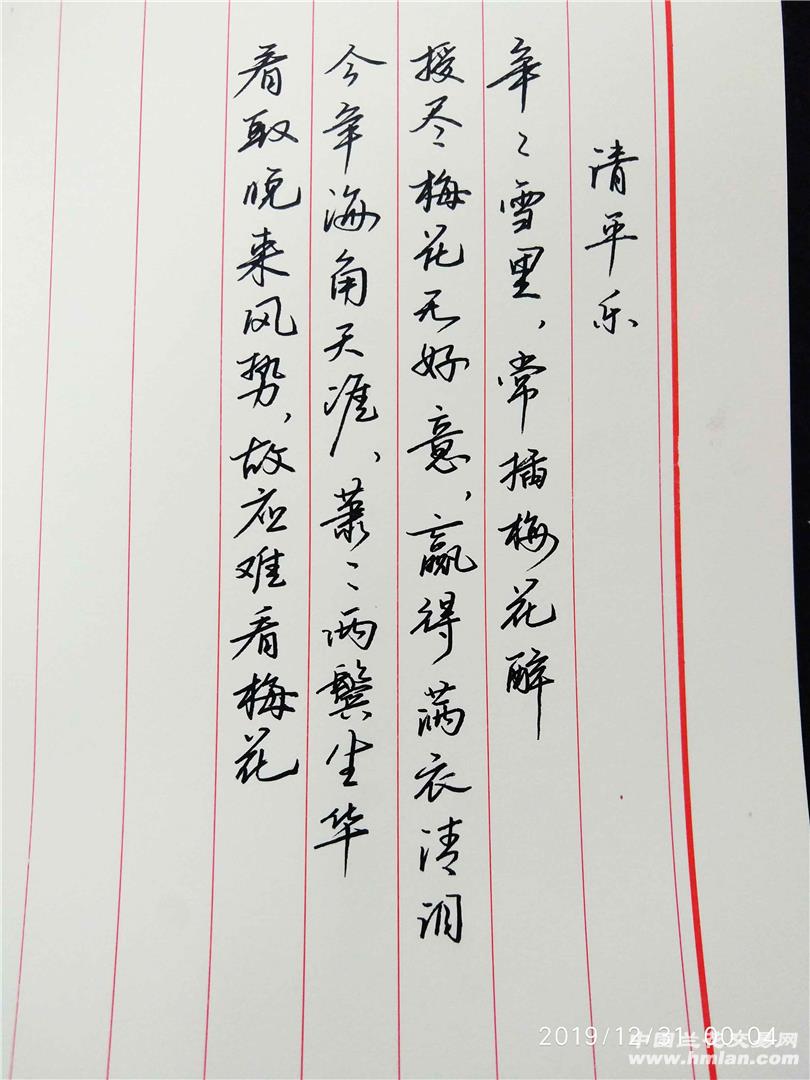 清平乐
年々雪里，常插梅花醉
挼尽梅花无好意，赢得满衣清泪
今年海角天涯，萧々两鬓生华
看取晚来风势，故应难看梅花
2019/12/31 00:04
中国兰花交易网
www.hmlan.com